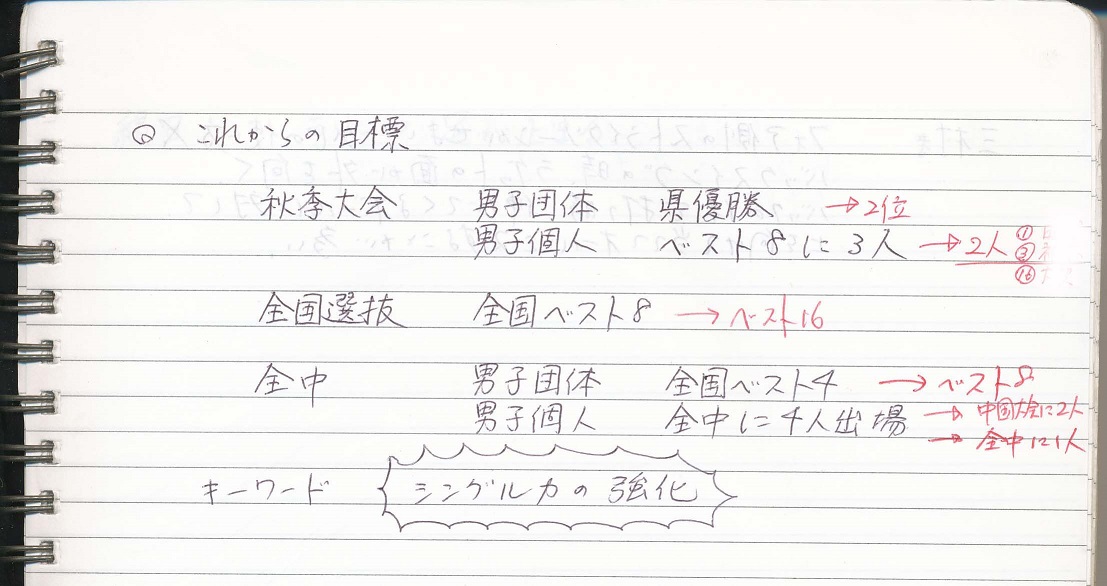 ◎ これからの目標
秋季大会 男子団体 県優勝 →2位
男子個人 ベスト8に3人 →2人 ①
③
⑯
全国選抜 全国ベスト8 →ベスト16
全中 男子団体 全国ベスト4 →ベスト8
男子個人 全中に4人出場 →中国大会に2人
→全中に1人
キーワード シングル力の強化